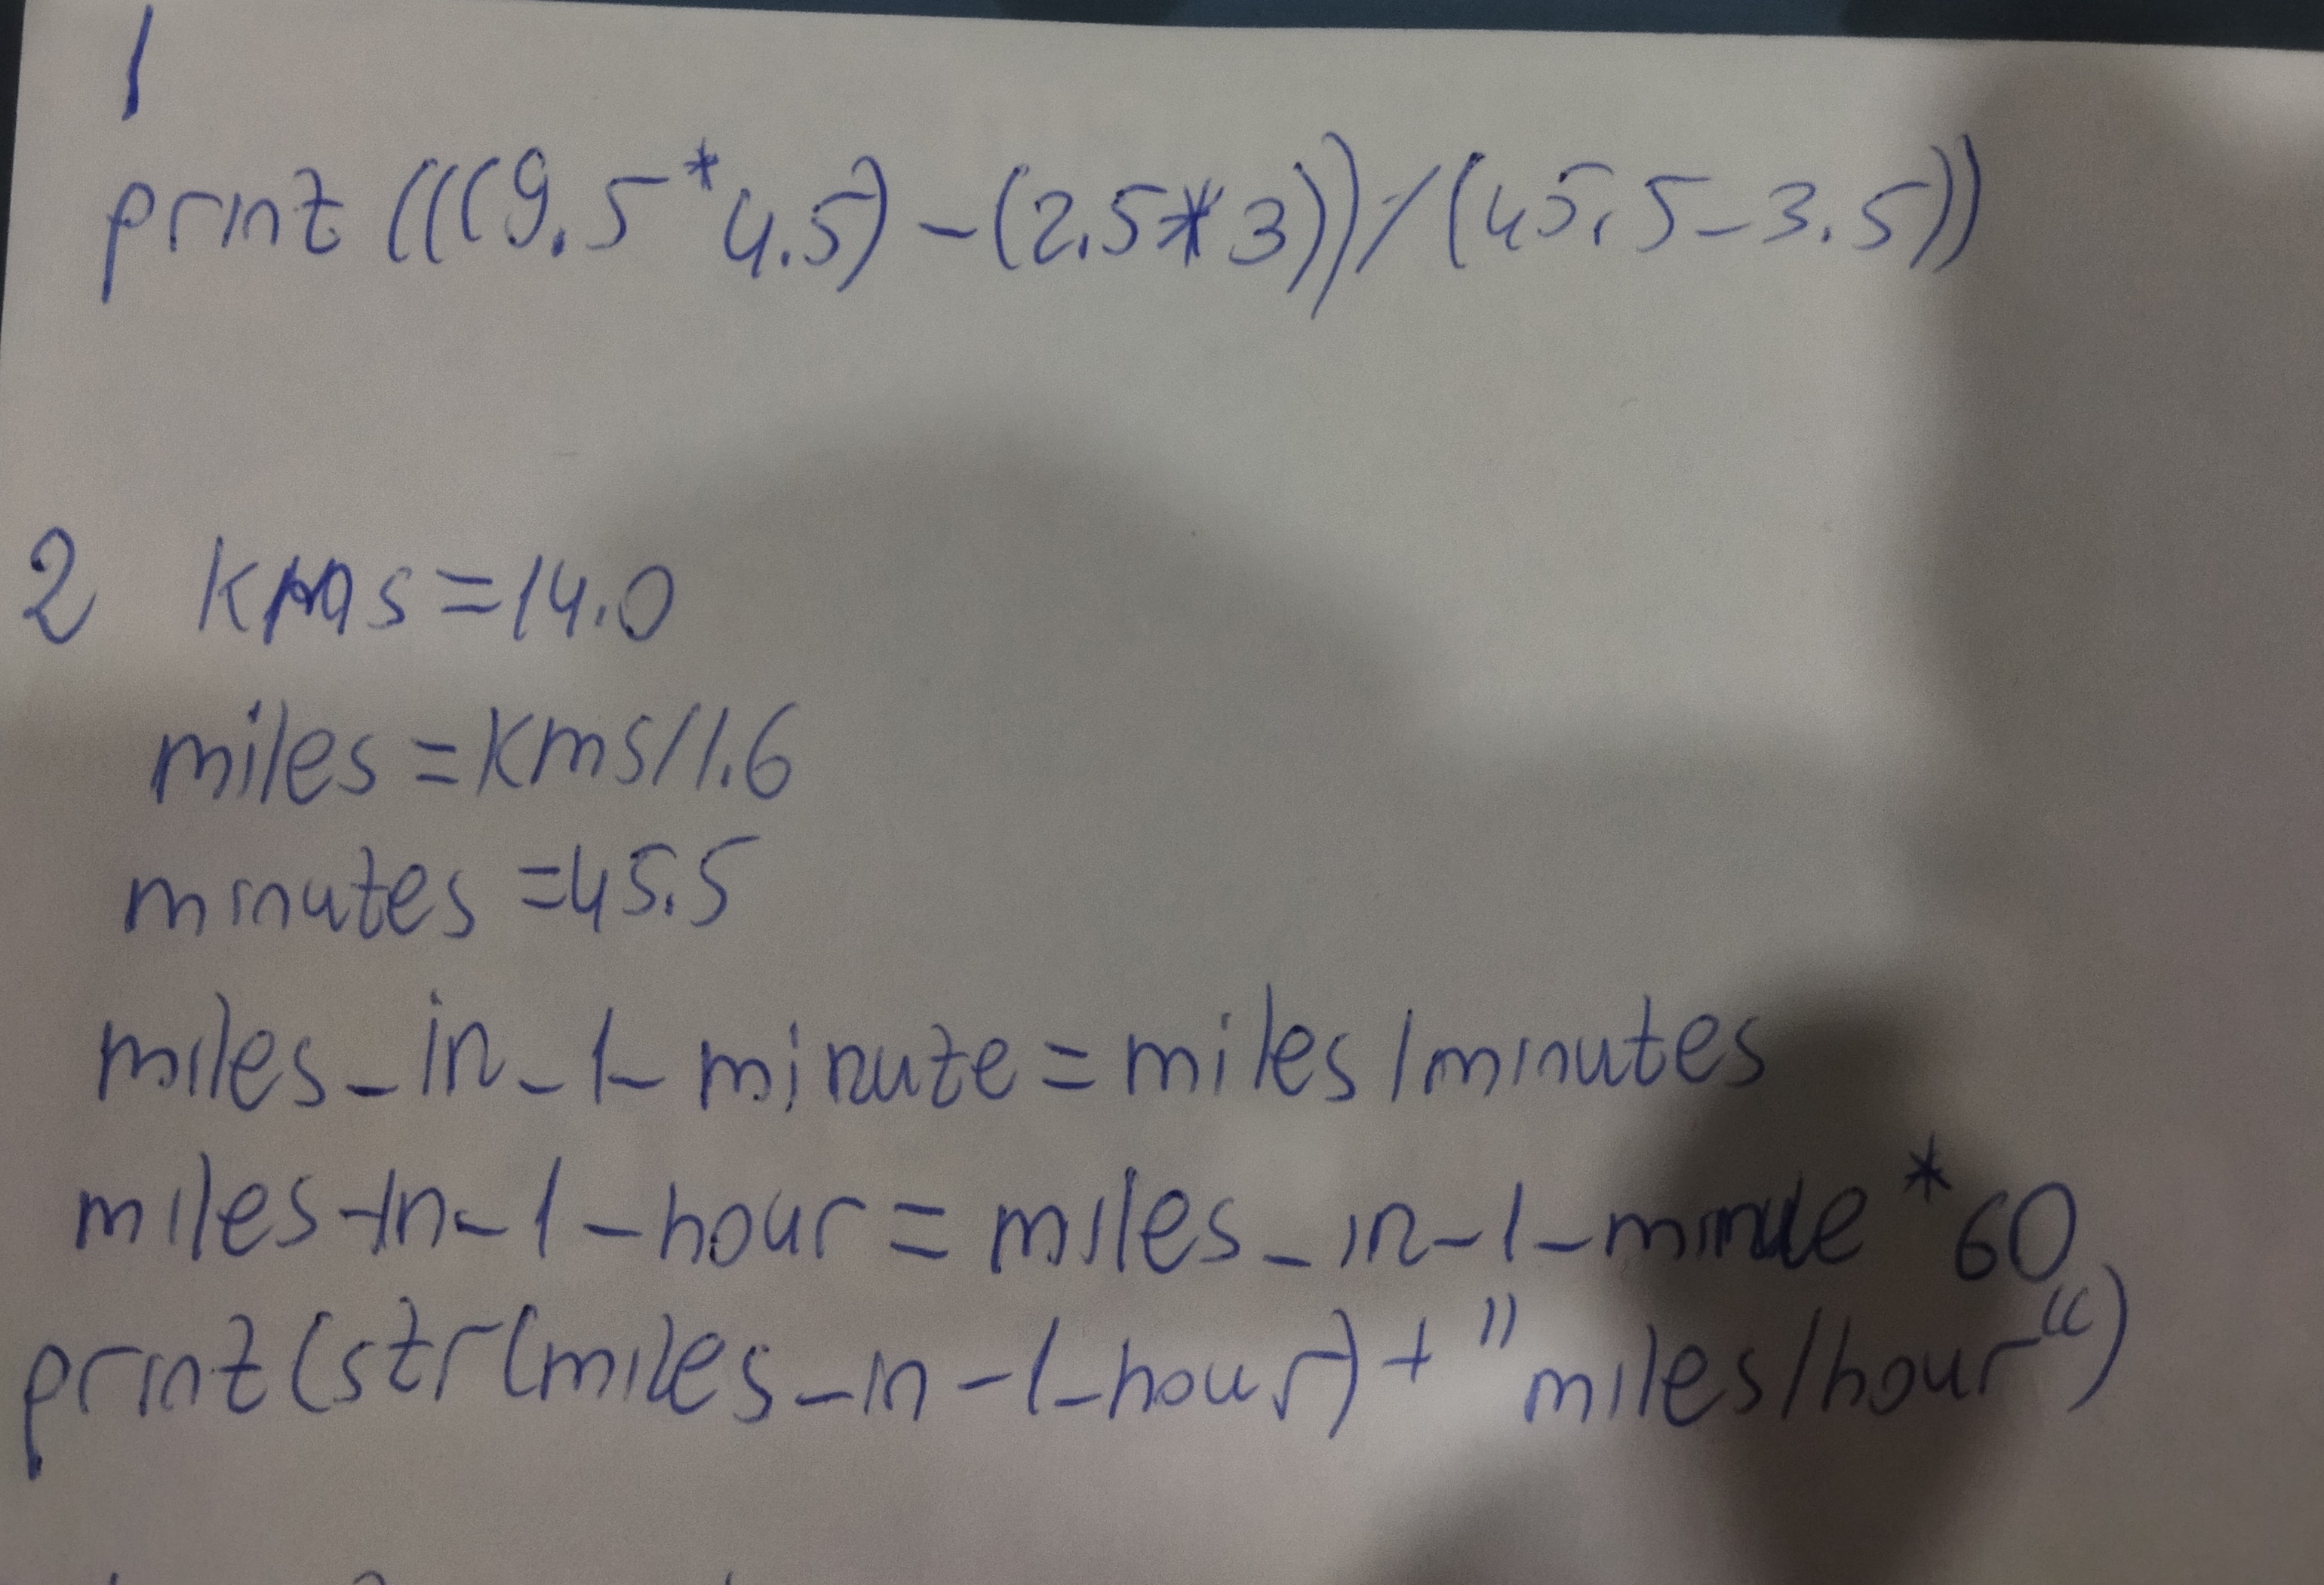 1
print (((9.5*4.5)-(2.5*3))/(45.5-3.5))
2 kms=14.0
miles=kms/1.6
minutes=45.5
miles_in_1_minute=miles/minutes
miles_in_1_hour=miles_in_1_minute*60
print(str(miles_in_1_hour)+"miles/hour")